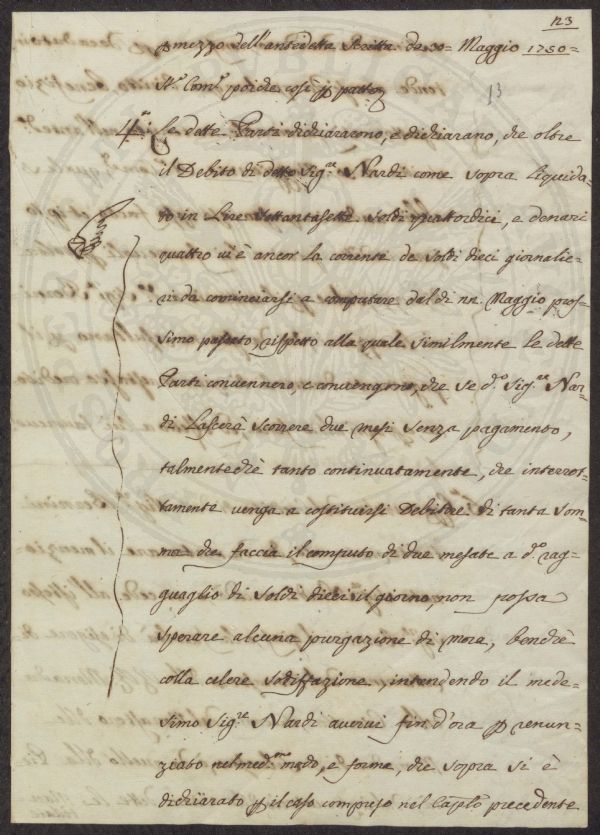 123
p mezzo dell'antedetta Scritta de 30 = Maggio 1750 =
13
Sr. Come. poiche così p patto
4. Le dette Parti dichiaracono, e dichiarano, che oltre
il Debito di detto Sig.re Nardi come sopra liquida=
to in Lire Settantasette soldi quattordici, e denari
quattro vi è ancor la corrente de soldi dieci giornalie=
ri da cominciarsi a computare dal dì nn. Maggio pros=
simo passato, rispetto alla quale similmente le dette
Parti convennero, e convengono, che se d.o Sig.re Nar=
di lascerà scorrere due mesi senza pagamento,
talmenteche tanto continuatamente, che interrot=
tamente venga a costituirsi Debitore di tanta som=
ma che faccia il computo di due mesate a d.o rag=
guaglio di soldi dieci il giorno, non possa
sperare alcuna purgazione di mora, benchè
colla celere sodisfazione, intendendo il mede=
simo Sig.re Nardi avervi fin d'ora p renun=
ziato nel med.mo modo, e forme, che sopra si è
dichiarato p il caso compreso nel Caplo precedente